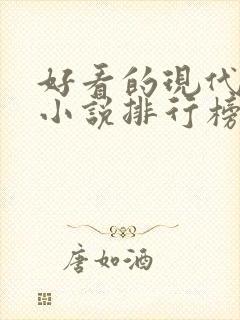 好看的现代
小说排行榜
唐如酒